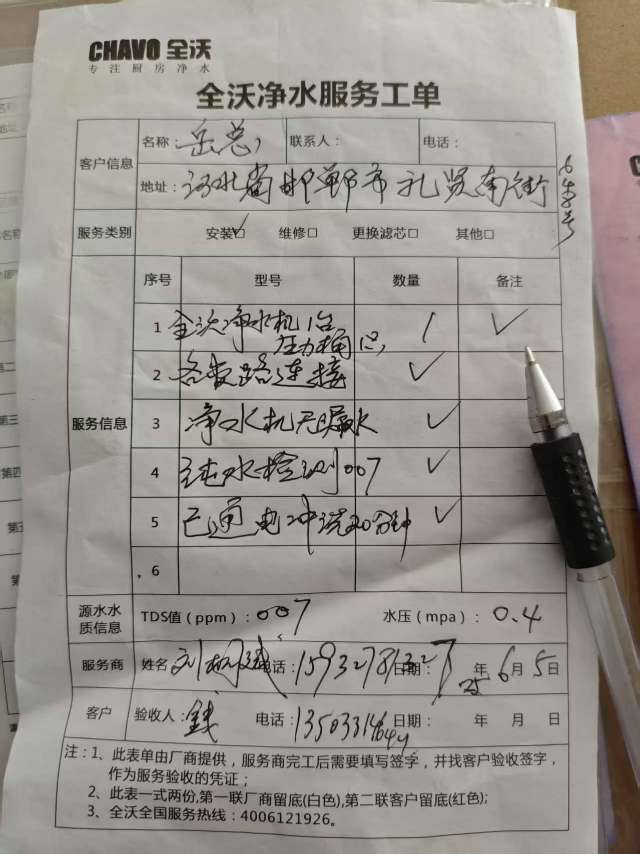 CHAVO 全沃
专注厨房净水
全沃净水服务工单
客户信息
名称：岳总 联系人： 电话：
地址：河北省邯郸市礼贤南街648号
服务类别 安装☑ 维修□ 更换滤芯□ 其他□
服务信息
序号 型号 数量 备注
1 全沃净水机1台 1 ✓
压力桶1只
2 各管路连接 ✓
3 净水机无漏水 ✓
4 纯水检测007 ✓
5 已通电冲洗30分钟 ✓
6
源水水质信息 TDS值（ppm）：007 水压（mpa）：0.4
服务商 姓名 刘 电话：15932781327 日期： 25年6月5日
客户 验收人：钱 电话： 日期： 年 月 日
注：1、此表单由厂商提供，服务商完工后需要填写签字，并找客户验收签字，
作为服务验收的凭证；
2、此表一式两份,第一联厂商留底(白色),第二联客户留底(红色);
3、全沃全国服务热线：4006121926。